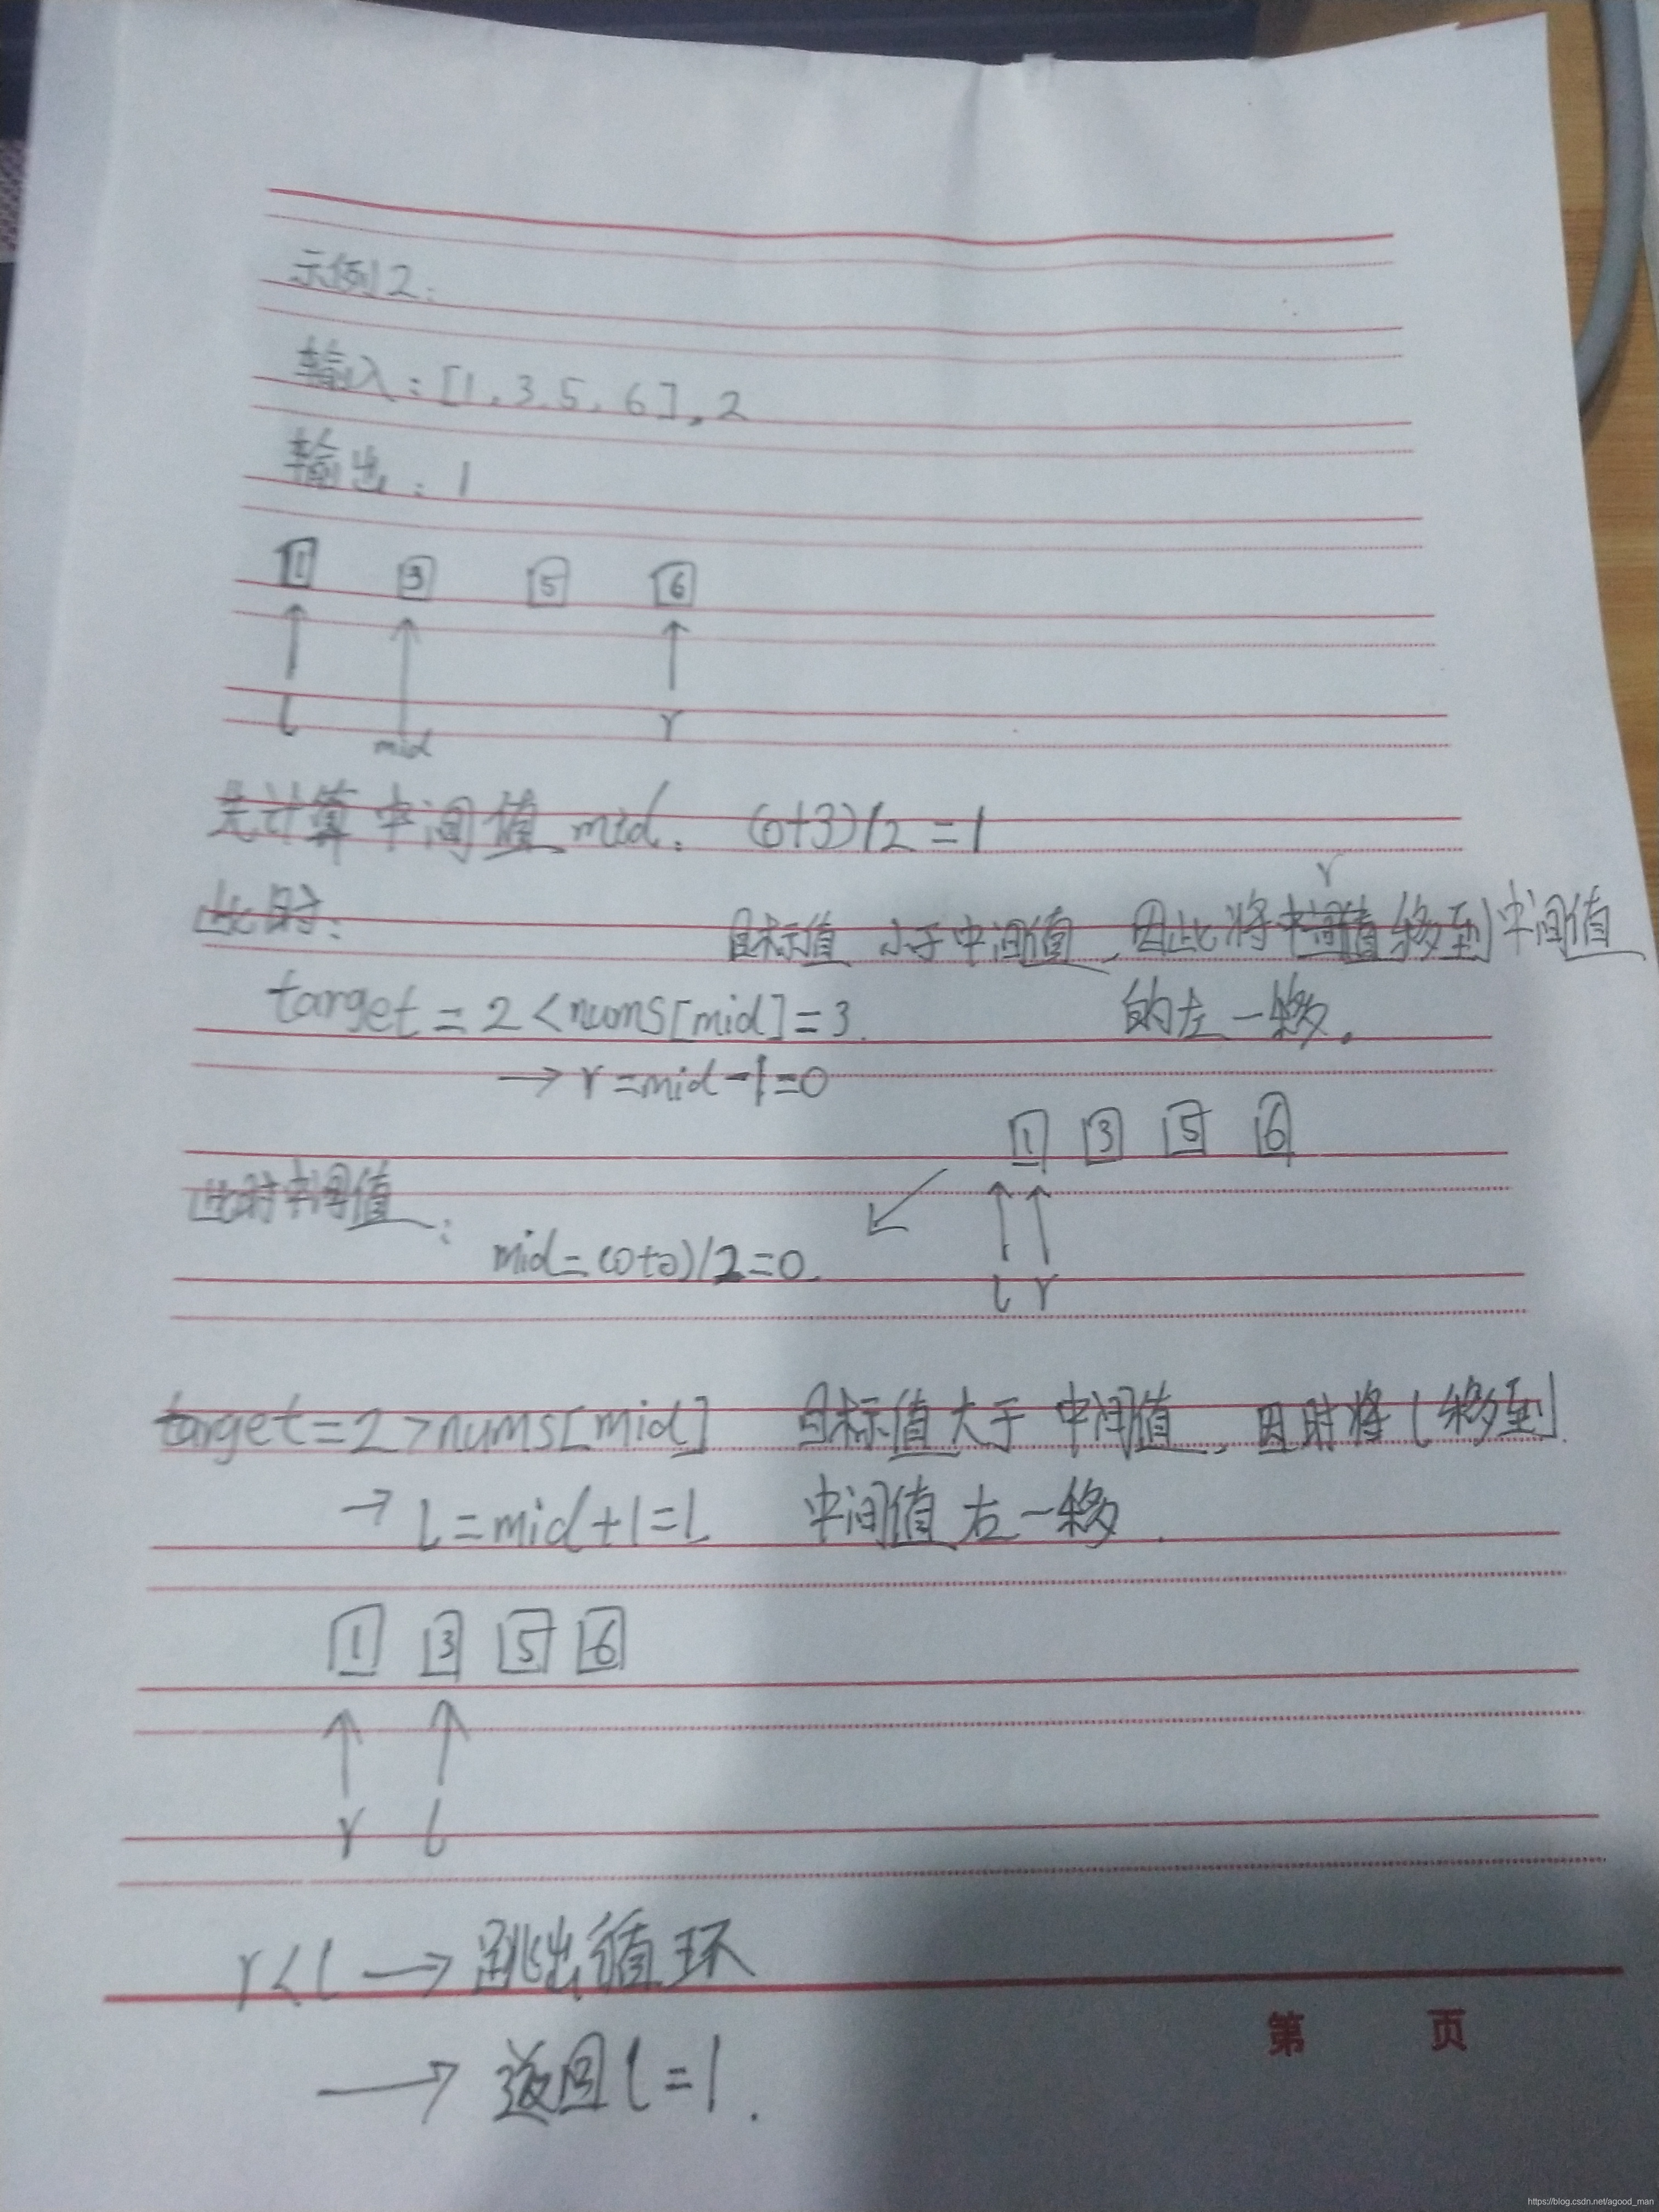 示例2:
输入:[1,3,5,6],2
输出:1
1 3 5 6
l mid r
先计算中间值mid. (0+3)/2=1
此时: 目标值小于中间值,因此将中间值移到中间值
r
target=2<nums[mid]=3. 的左一移.
→r=mid-1=0
1 3 5 6
此时中间值:
mid=(0+0)/2=0.
l r
target=2>nums[mid] 目标值大于中间值,因时将l移到
→l=mid+1=1 中间值右一移.
1 3 5 6
r l
r<l→跳出循环
第 页
→返回l=1.
https://blog.csdn.net/agood_man